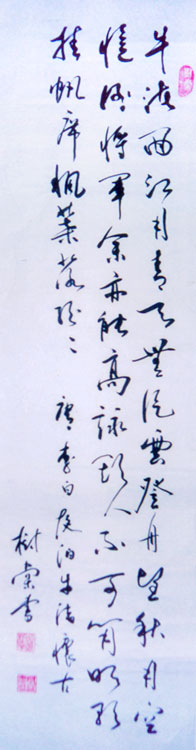 牛渚西江月青天無片雲登舟望秋月空
憶謝將軍余亦能高詠斯人不可聞明朝
挂帆席楓葉落紛〻 唐李白夜泊牛渚懷古
樹棠書